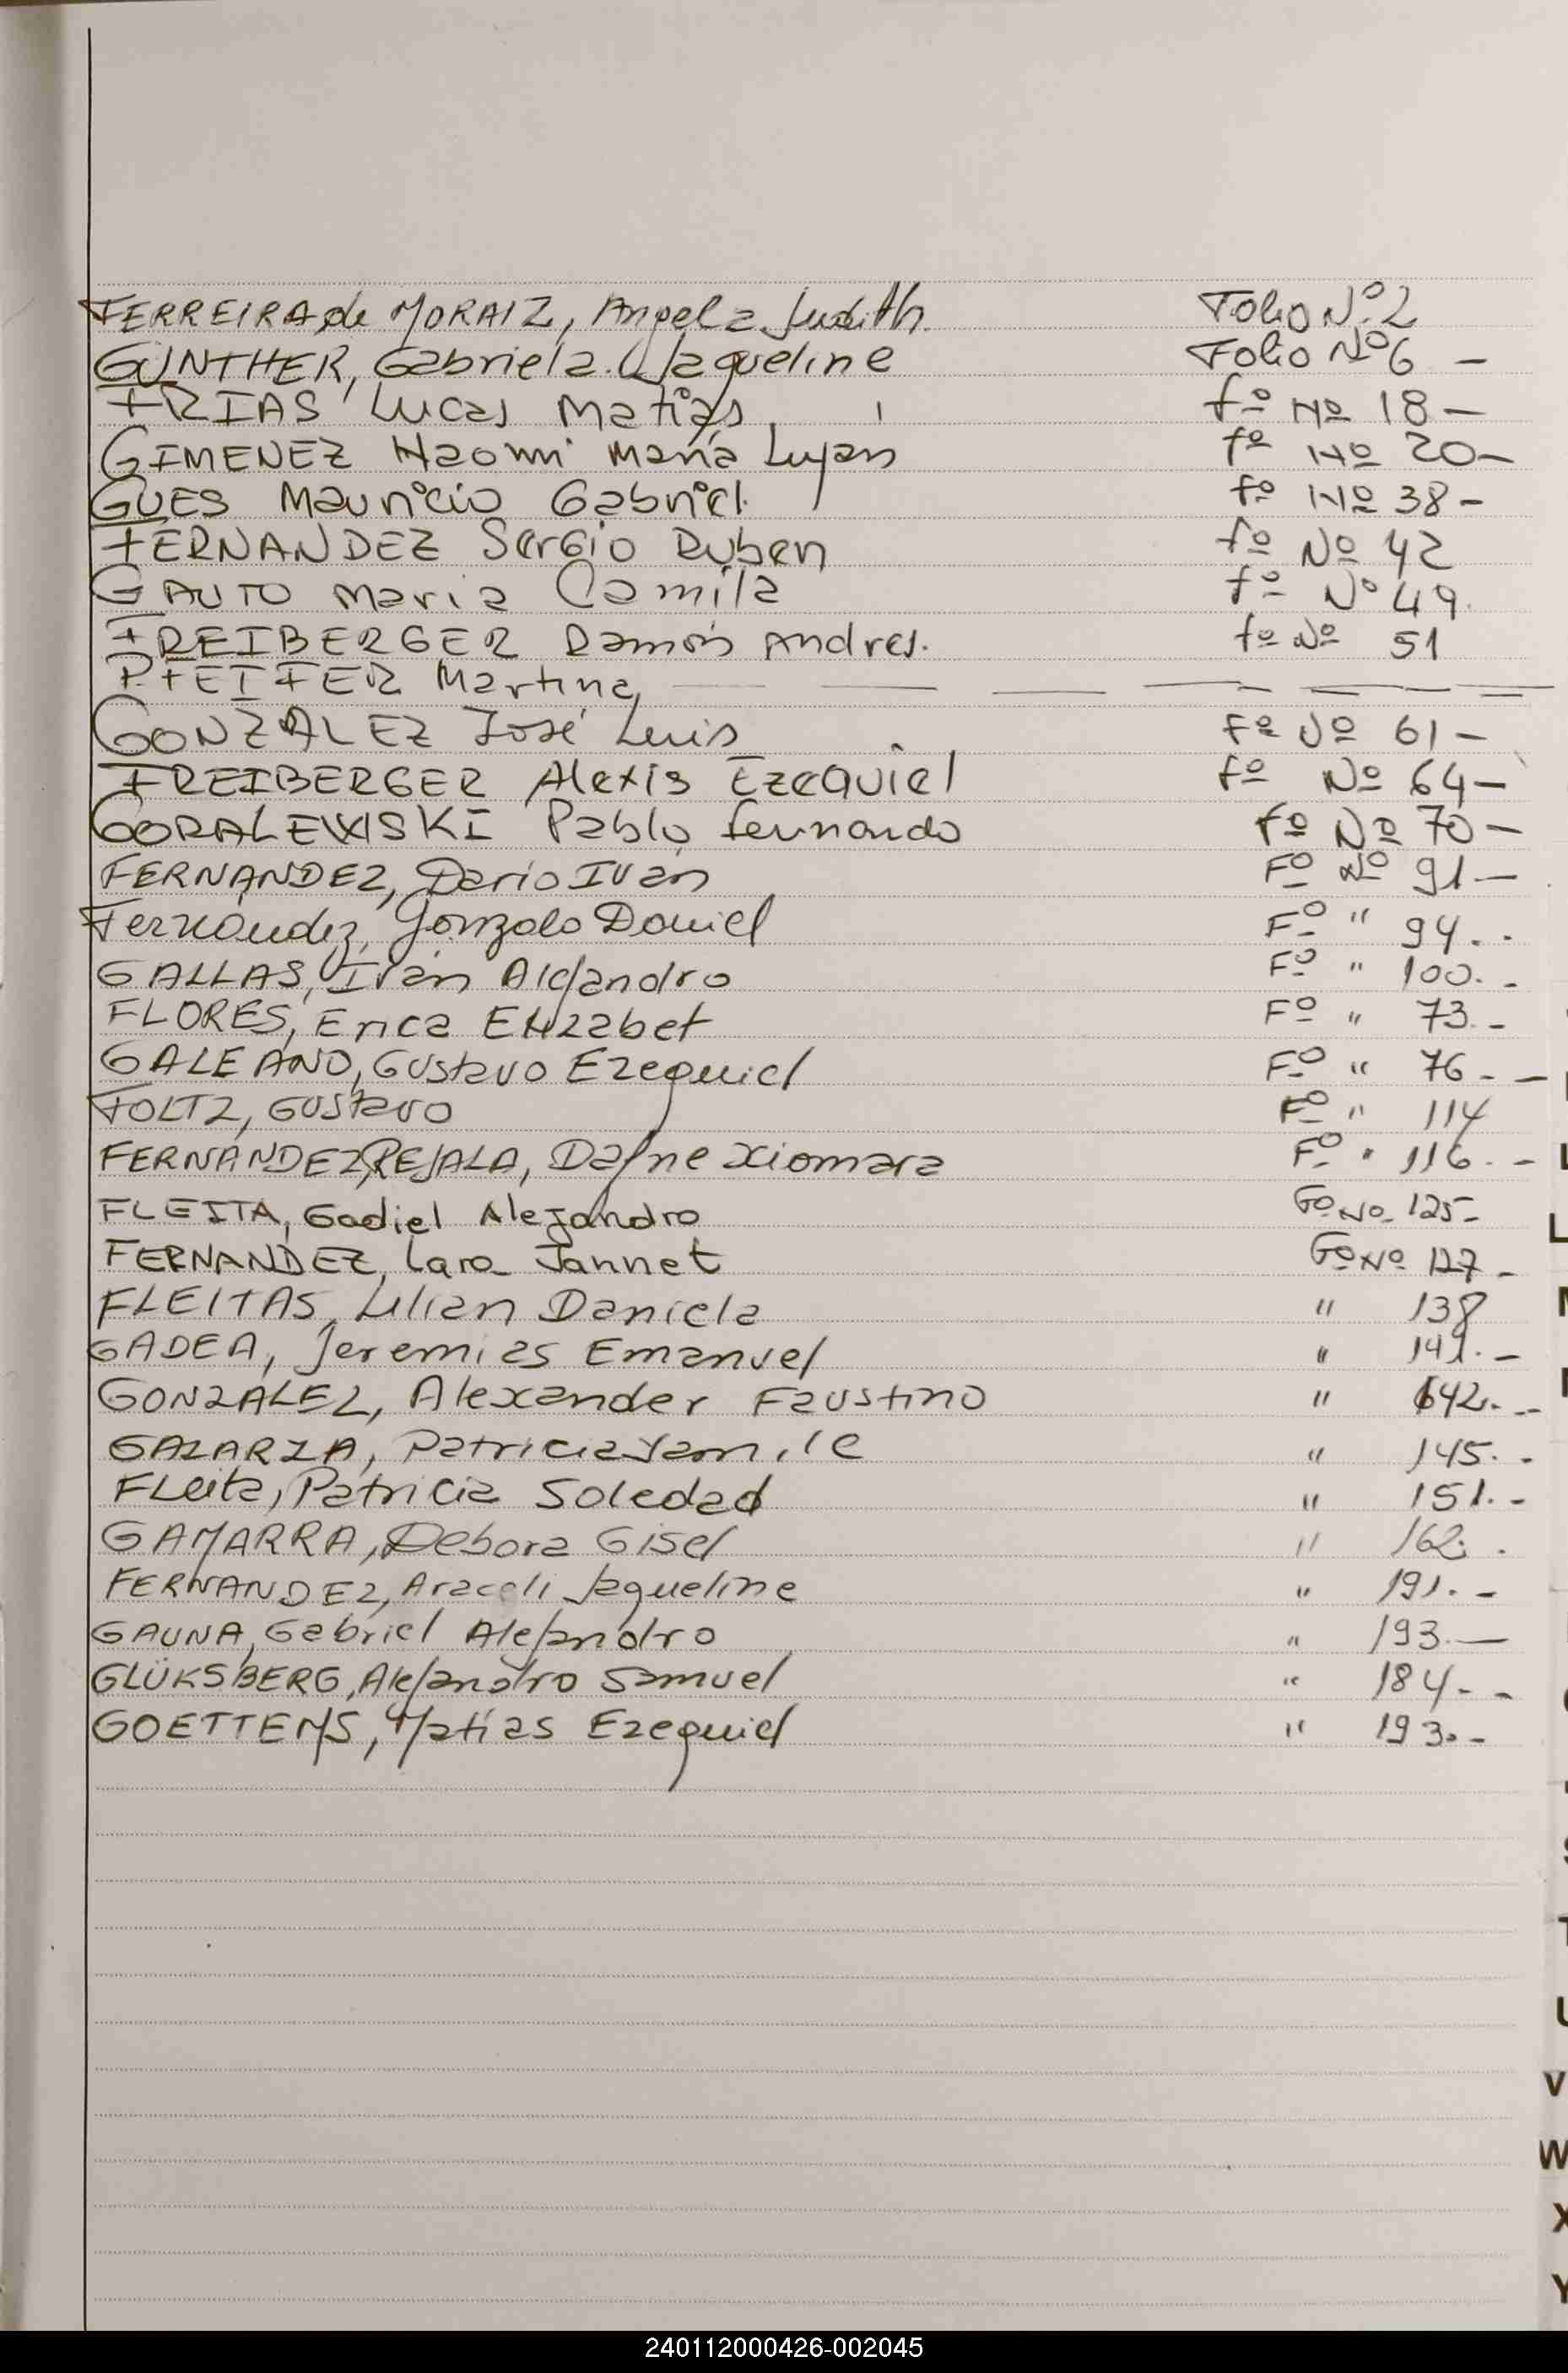 FERREIRA de MORAIZ, Angela Judith. Folio Nº 2
GÜNTHER, Gabriela Jaqueline Folio Nº 6 -
FRIAS Lucas Matias fº Nº 18 -
GIMENEZ Naomi María Lujan fº Nº 20 -
GUES Mauricio Gabriel. fº Nº 38 -
FERNANDEZ Sergio Ruben fº Nº 42
GAUTO Maria Camila fº Nº 49.
FREIBERGER Ramón Andres. fº Nº 51
PFEIFER Martina
GONZALEZ José Luis Fº Nº 61 -
FREIBERGER Alexis Ezequiel fº Nº 64 -
GORALEWISKI Pablo Fernando Fº Nº 70 -
FERNÁNDEZ, Darío Iván Fº Nº 91 -
Fernández, Gonzalo Daniel Fº " 94. -
GALLAS, Iván Alejandro Fº " 100. -
FLORES, Erica Elizabet Fº " 73. -
GALEANO, Gustavo Ezequiel Fº " 76 - -
FOLTZ, Gustavo Fº " 114
FERNÁNDEZ REJALA, Dafne Xiomara Fº " 116. -
FLEITA, Gadiel Alejandro Fº Nº 125 -
FERNANDEZ, Lara Jannet Fº Nº 127 -
FLEITAS, Lilian Daniela " 138
GADEA, Jeremias Emanuel " 141. -
GONZALEZ, Alexander Faustino " 142. -
GALARZA, Patricia Yamile " 145. -
FLeita, Patricia Soledad " 151. -
GAMARRA, Debora Gisel " 162. -
FERNANDEZ, Araceli Jaqueline " 191. -
GAUNA, Gabriel Alejandro " 193. -
GLÜKSBERG, Alejandro Samuel " 184 - -
GOETTEMS, Matías Ezequiel " 193. -
L
V
W
X
Y
240112000426-002045